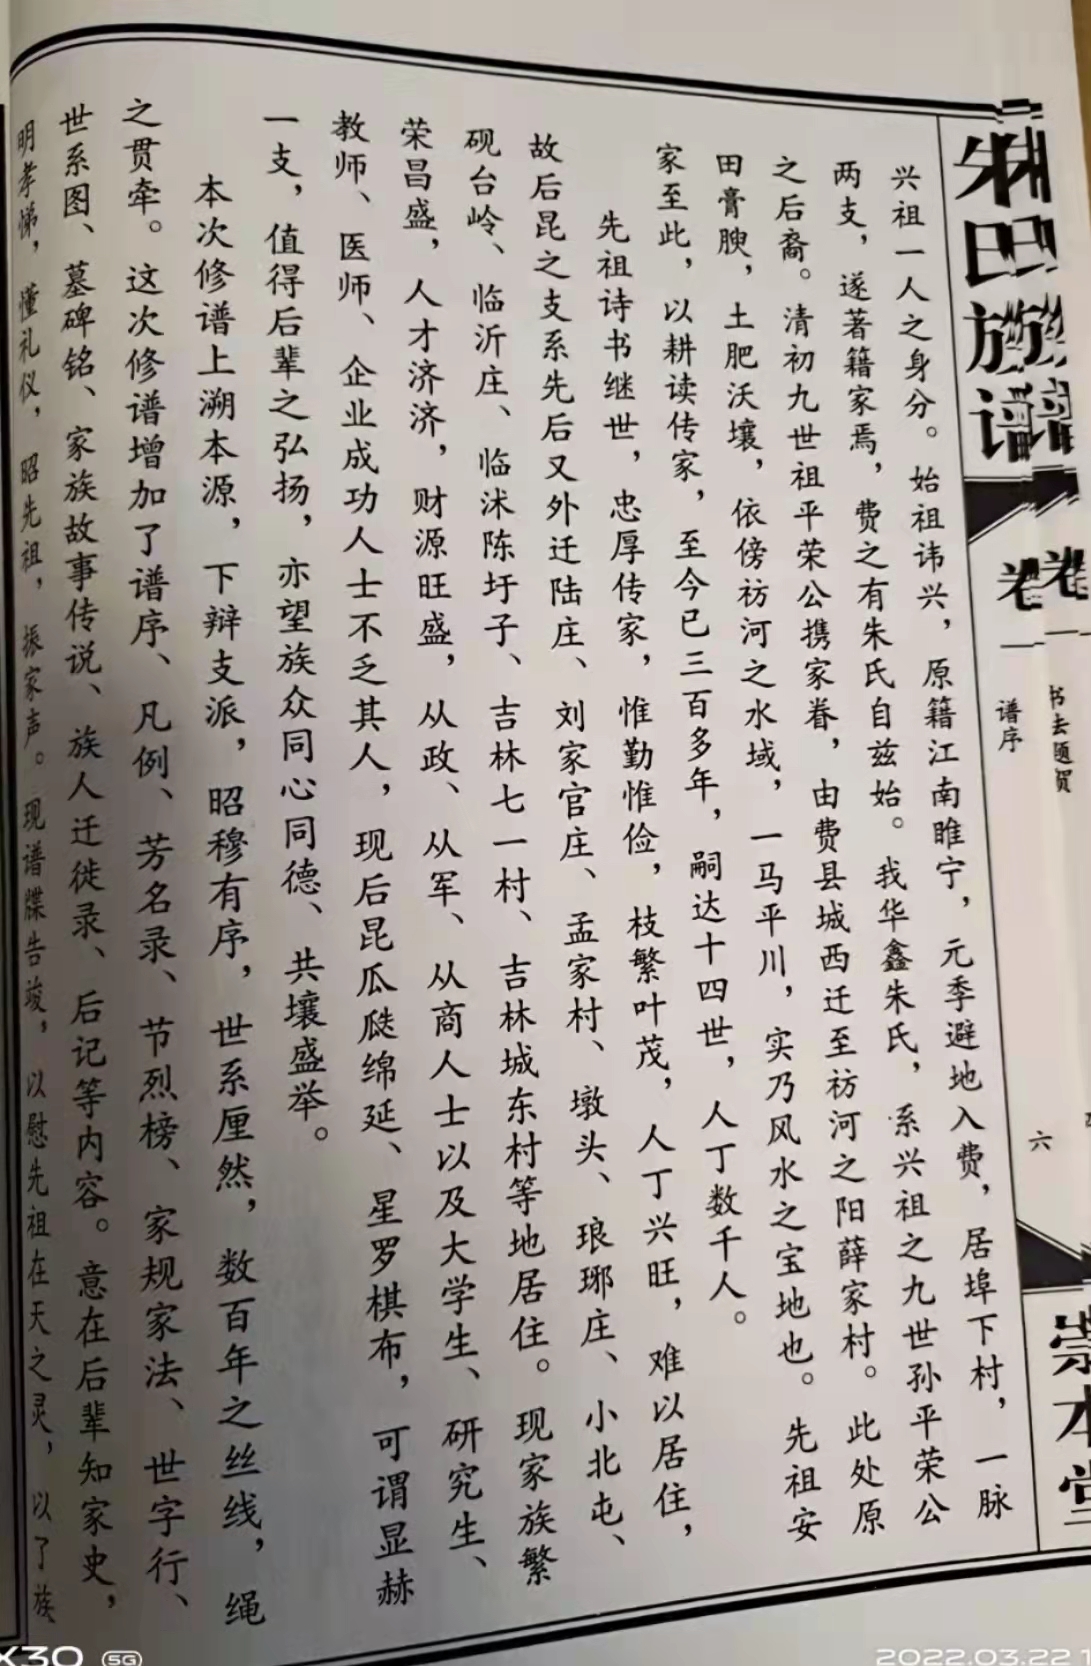 朱氏族谱
卷一
谱序
六
崇本堂
兴祖一人之身分。始祖讳兴，原籍江南睢宁，元季避地入费，居埠下村，一脉
两支，遂著籍家焉，费之有朱氏自兹始。我华鑫朱氏，系兴祖之九世孙平荣公
之后裔。清初九世祖平荣公携家眷，由费县城西迁至祊河之阳薛家村。此处原
田膏腴，土肥沃壤，依傍祊河之水域，一马平川，实乃风水之宝地也。先祖安
家至此，以耕读传家，至今已三百多年，嗣达十四世，人丁数千人。
先祖诗书继世，忠厚传家，惟勤惟俭，枝繁叶茂，人丁兴旺，难以居住，
故后昆之支系先后又外迁陆庄、刘家官庄、孟家村、墩头、琅琊庄、小北屯、
砚台岭、临沂庄、临沭陈圩子、吉林七一村、吉林城东村等地居住。现家族繁
荣昌盛，人才济济，财源旺盛，从政、从军、从商人士以及大学生、研究生、
教师、医师、企业成功人士不乏其人，现后昆瓜瓞绵延、星罗棋布，可谓显赫
一支，值得后辈之弘扬，亦望族众同心同德、共壤盛举。
本次修谱上溯本源，下辩支派，昭穆有序，世系厘然，数百年之丝线，绳
之贯牵。这次修谱增加了谱序、凡例、芳名录、节烈榜、家规家法、世字行、
世系图、墓碑铭、家族故事传说、族人迁徙录、后记等内容。意在后辈知家史，
明孝悌，懂礼仪，昭先祖，振家声。现谱牒告竣，以慰先祖在天之灵，以了族
X30 5G
2022.03.22